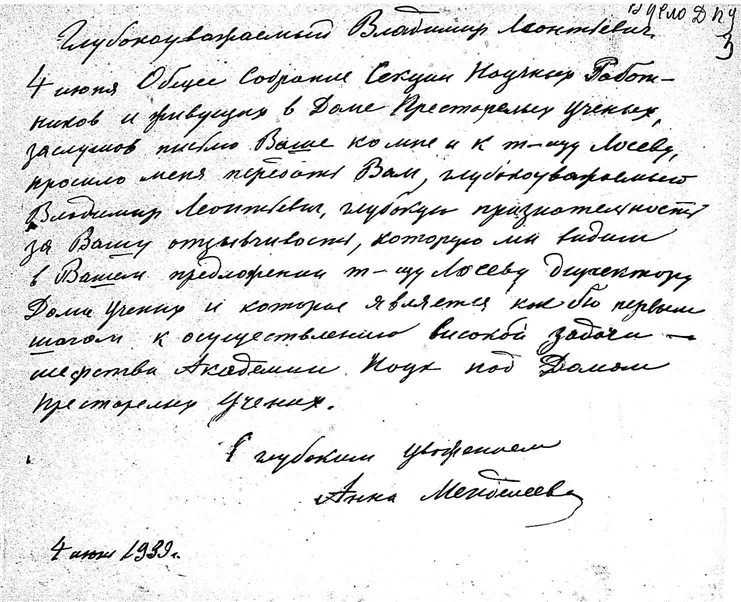 В дело ДПУ
3
Глубокоуважаемый Владимир Леонтьевич.
4 июня Общее Собрание Секции Научных Работ-
ников и живущих в Доме Престарелых Ученых,
заслушав письмо Ваше ко мне и к т-щу Лосеву,
просило меня передать Вам, глубокоуважаемый
Владимир Леонтьевич, глубокую признательность
за Вашу отзывчивость, которую мы видим
в Вашем предложении т-щу Лосеву директору
Дома Ученых и которое является как бы первым
шагом к осуществлению высокой задачи —
шефства Академии Наук над Домом
Престарелых Ученых.
С глубоким уважением
Анна Менделеева
4 июня 1939 г.